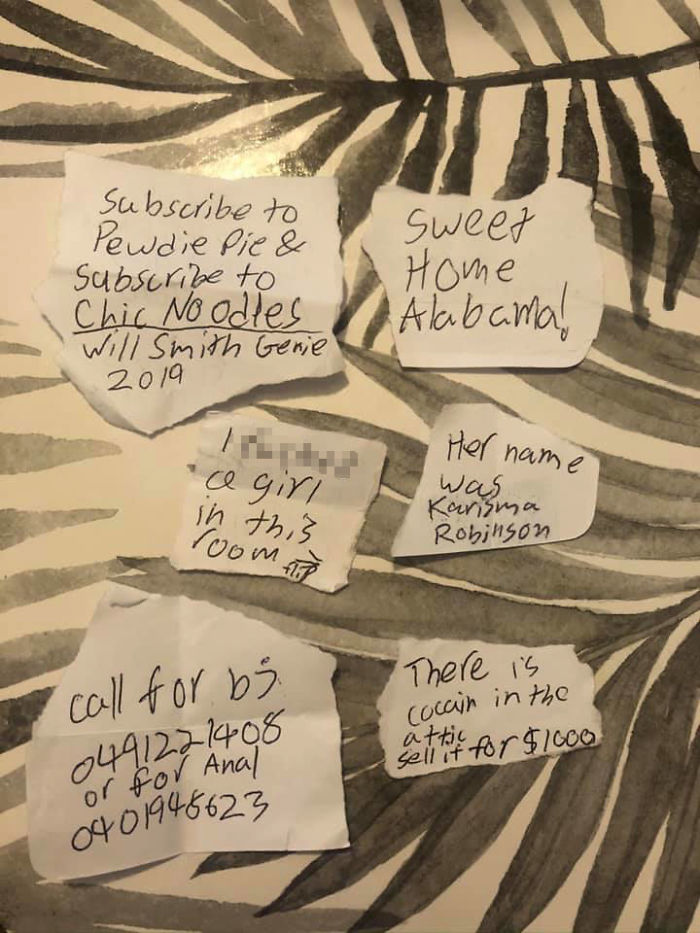 Subscribe to
Pewdie Pie &
Subscribe to
Chic Noodles
Will Smith Genie
2019
Sweet
Home
Alabama!
I
a girl
in this
room
Her name
was
Karisma
Robinson
call for bj
0491221408
or for Anal
0401945623
There is
cocain in the
attic
sell it for $1000